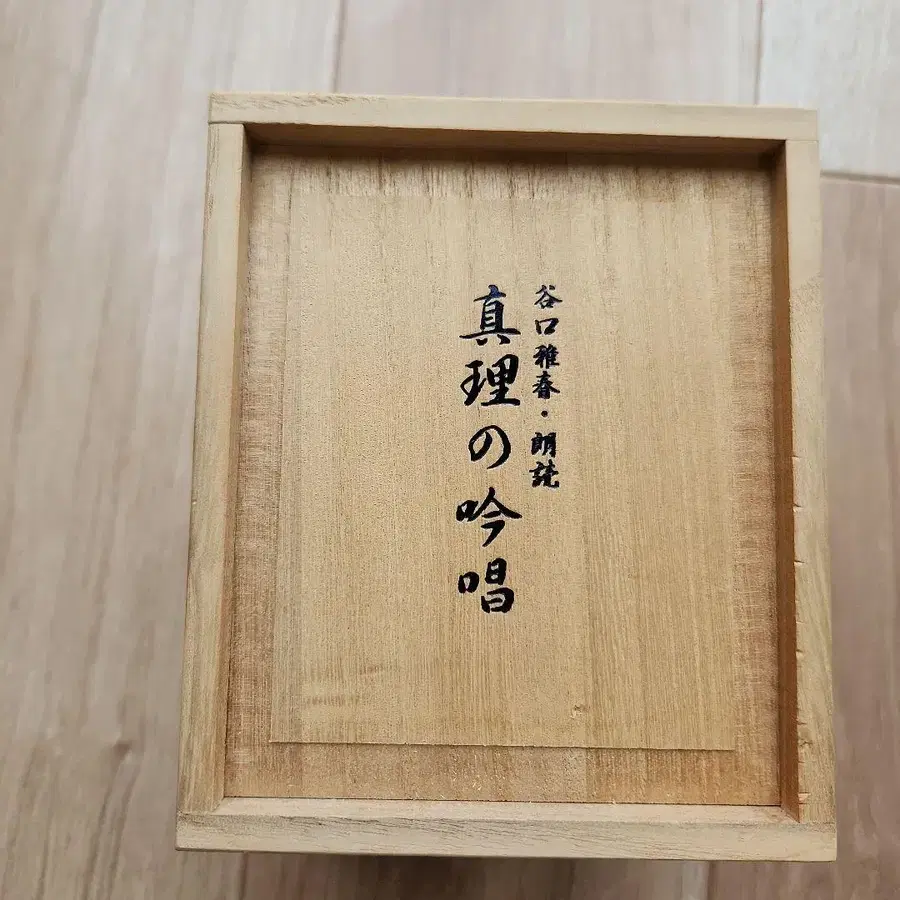 谷口雅春・朗読
真理の吟唱